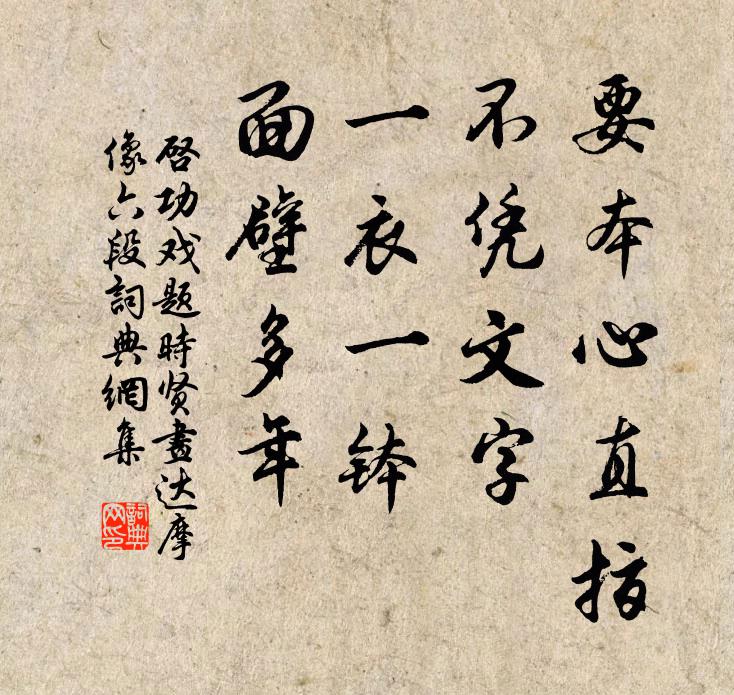 要本心直指
不凭文字
一衣一钵
面壁多年
啓功戏题時贤畫达摩
像六段詞典網集
詞典
网印